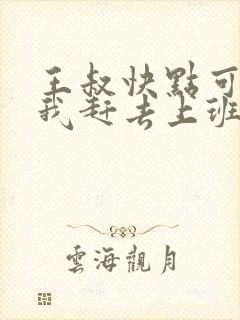 王叔快點可
我赶去上班
雲海觀月